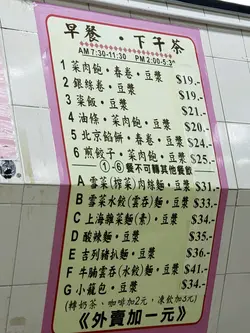 早餐・下午茶
AM 7:30-11:30 PM 2:00-5:3
1 菜肉飽・春卷・豆漿 $19.-
2 銀絲卷・豆漿 $19.-
3 粢飯・豆漿 $21.-
4 油條・菜肉飽・豆漿 $20.-
5 北京餡餅・春卷・豆漿 $24.-
6 煎餃子・菜肉飽・豆漿 $25.-
①-⑥餐不可轉其他餐飲
A 雪菜(榨菜)肉絲麵・豆漿 $31.-
B 雪菜水餃(雲吞)麵・豆漿 $33.-
C 上海雜菜麵(素)・豆漿 $34.-
D 酸辣麵・豆漿 $35.-
E 吉列豬扒麵・豆漿 $36.-
F 牛腩雲吞(水餃)麵・豆漿 $41.-
G 小籠包・豆漿 $34.-
(轉奶茶、咖啡加2元，凍飲加3元)
《外賣加一元》